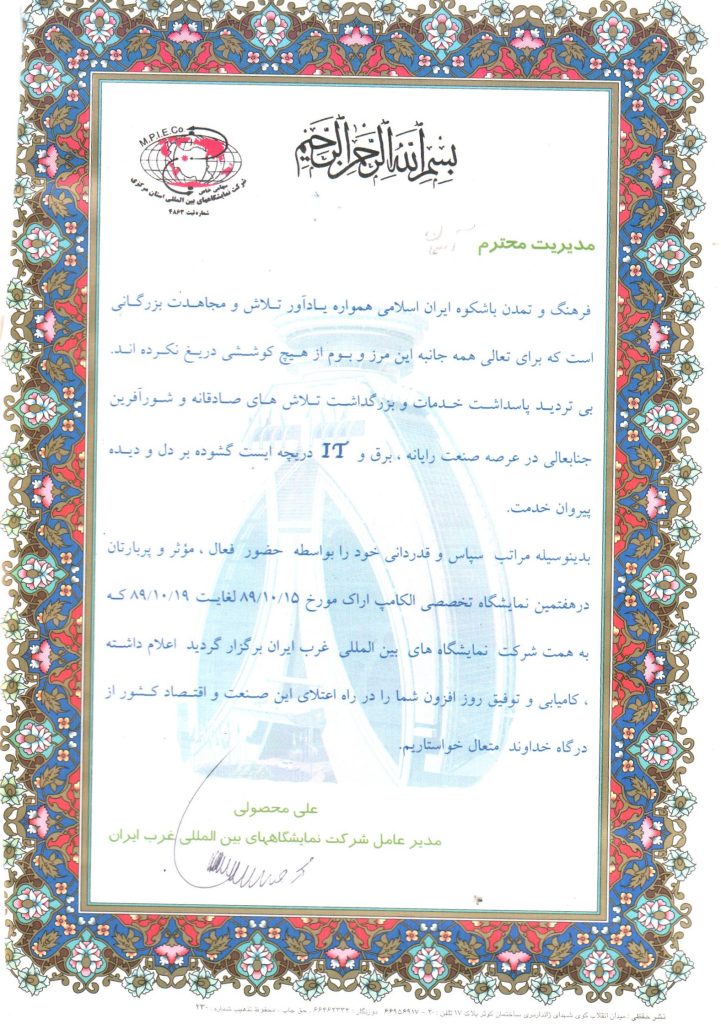 M.P.I.E.Co
سهامی خاص
شرکت نمایشگاههای بین المللی استان مرکزی
شماره ثبت ۴۸۶۳
بسم الله الرحمن الرحیم
مدیریت محترم
فرهنگ و تمدن باشکوه ایران اسلامی همواره یادآور تلاش و مجاهدت بزرگانی
است که برای تعالی همه جانبه این مرز و بوم از هیچ کوششی دریغ نکرده اند.
بی تردید پاسداشت خدمات و بزرگداشت تلاش های صادقانه و شورآفرین
جنابعالی در عرصه صنعت رایانه ، برق و IT دریچه ایست گشوده بر دل و دیده
پیروان خدمت.
بدینوسیله مراتب سپاس و قدردانی خود را بواسطه حضور فعال ، مؤثر و پربارتان
درهفتمین نمایشگاه تخصصی الکامپ اراک مورخ ۸۹/۱۰/۱۵ لغایت ۸۹/۱۰/۱۹ که
به همت شرکت نمایشگاه های بین المللی غرب ایران برگزار گردید اعلام داشته
، کامیابی و توفیق روز افزون شما را در راه اعتلای این صنعت و اقتصاد کشور از
درگاه خداوند متعال خواستاریم.
علی محصولی
مدیر عامل شرکت نمایشگاههای بین المللی غرب ایران
نشر حفظی : میدان انقلاب کوی شهدای ژاندارمری ساختمان کوثر پلاک ۱۷ تلفن : ۲۰ - ۶۶۹۵۶۹۱۷ دورنگار : ۶۶۴۶۳۳۳۲ . حق چاپ . محفوظ تذهیب شماره : ۲۳۰